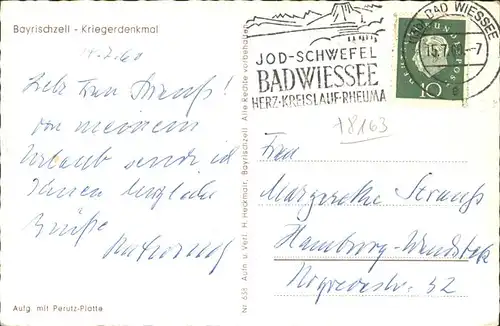 Bayrischzell - Kriegerdenkmal
14.7.60
Liebe Frau Strauß!
Von meinem
Urlaub sende ich
Ihnen herzliche
Grüße
Aufg. mit Perutz-Platte
Nr. 658 Aufn. u. Verl. H. Heckmair, Bayrischzell. Alle Rechte vorbehalten
JOD-SCHWEFEL
BAD WIESSEE
HERZ·KREISLAUF·RHEUMA
BAD WIESSEE
15.7.60.-7
e
10
+8163
Frau
Margarethe Strauß
Hamburg-Wandsbek
32